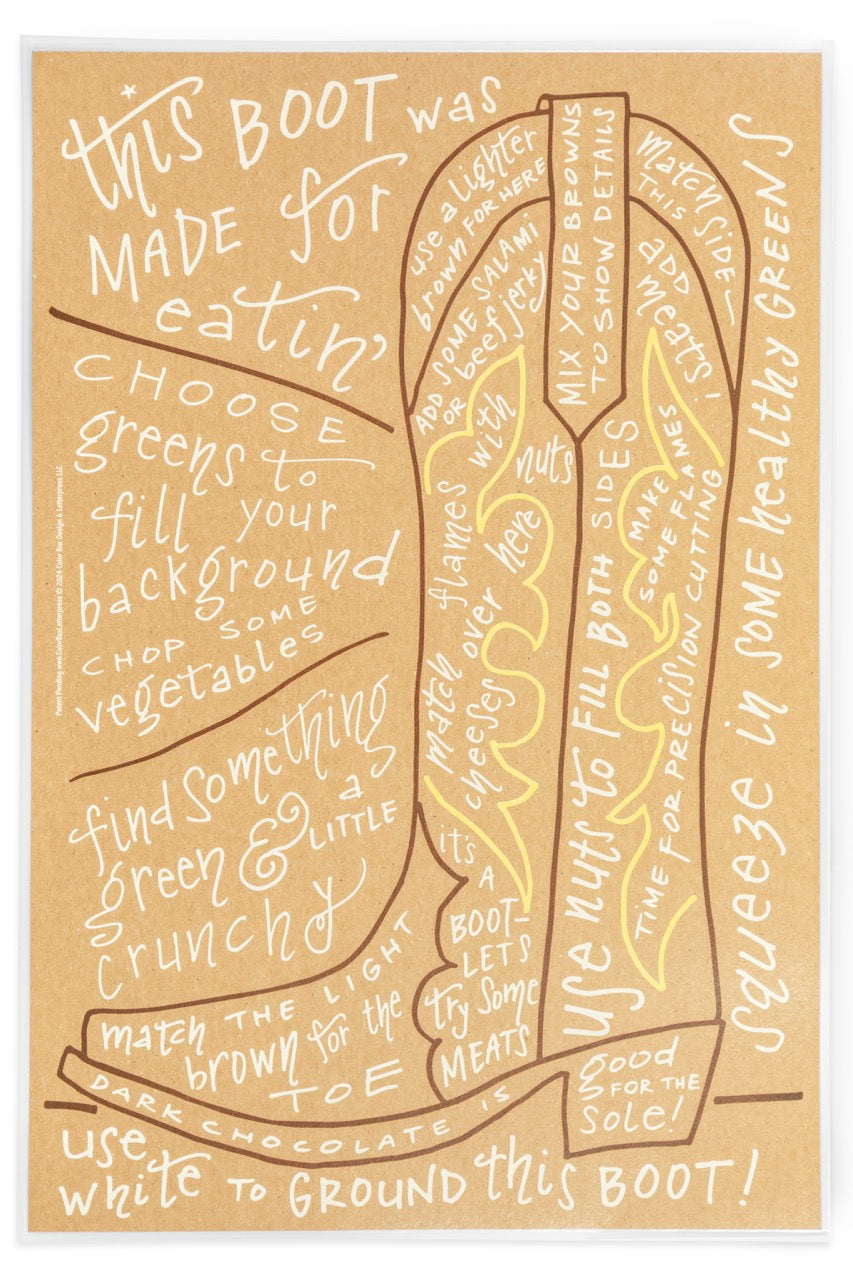 this BOOT was
MADE for
eatin'
CHOOSE
greens to
fill your
background
CHOP SOME
vegetables
find something
green & a
LITTLE
crunchy
use a lighter
brown FOR HERE
ADD SOME SALAMI
OR beef jerky
MIX YOUR BROWNS
TO SHOW DETAILS
match
THIS SIDE
ADD
meats!
match flames with
cheeses over here
nuts
use nuts to FILL BOTH SIDES
MAKE
SOME FLAMES
TIME FOR PRECISION CUTTING
squeeze in SOME healthy GREENS
it's
A
BOOT-
LETS
try some
MEATS
match THE LIGHT
brown for the
TOE
DARK CHOCOLATE IS
good
FOR THE
sole!
use
white TO GROUND this BOOT!
Patent Pending www.ColorBoxLetterpress © 2024 Color Box Design & Letterpress LLC